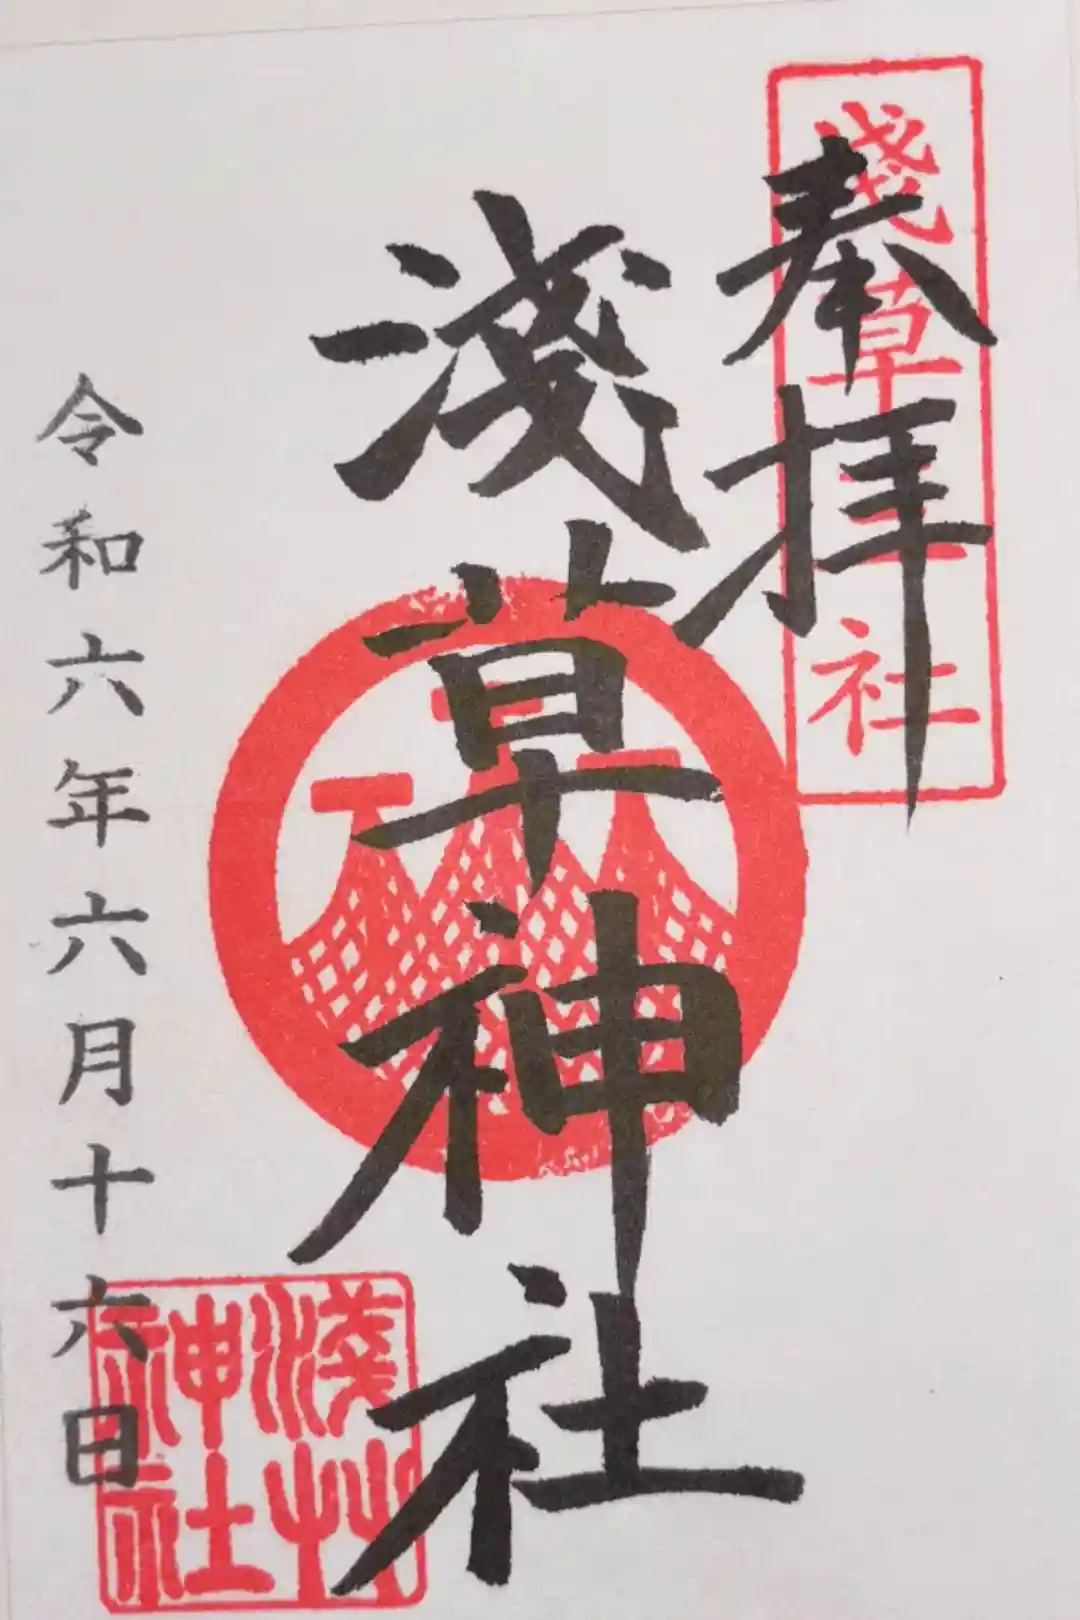 奉拝
淺草三社
淺草神社
令和六年六月十六日
淺艸神社